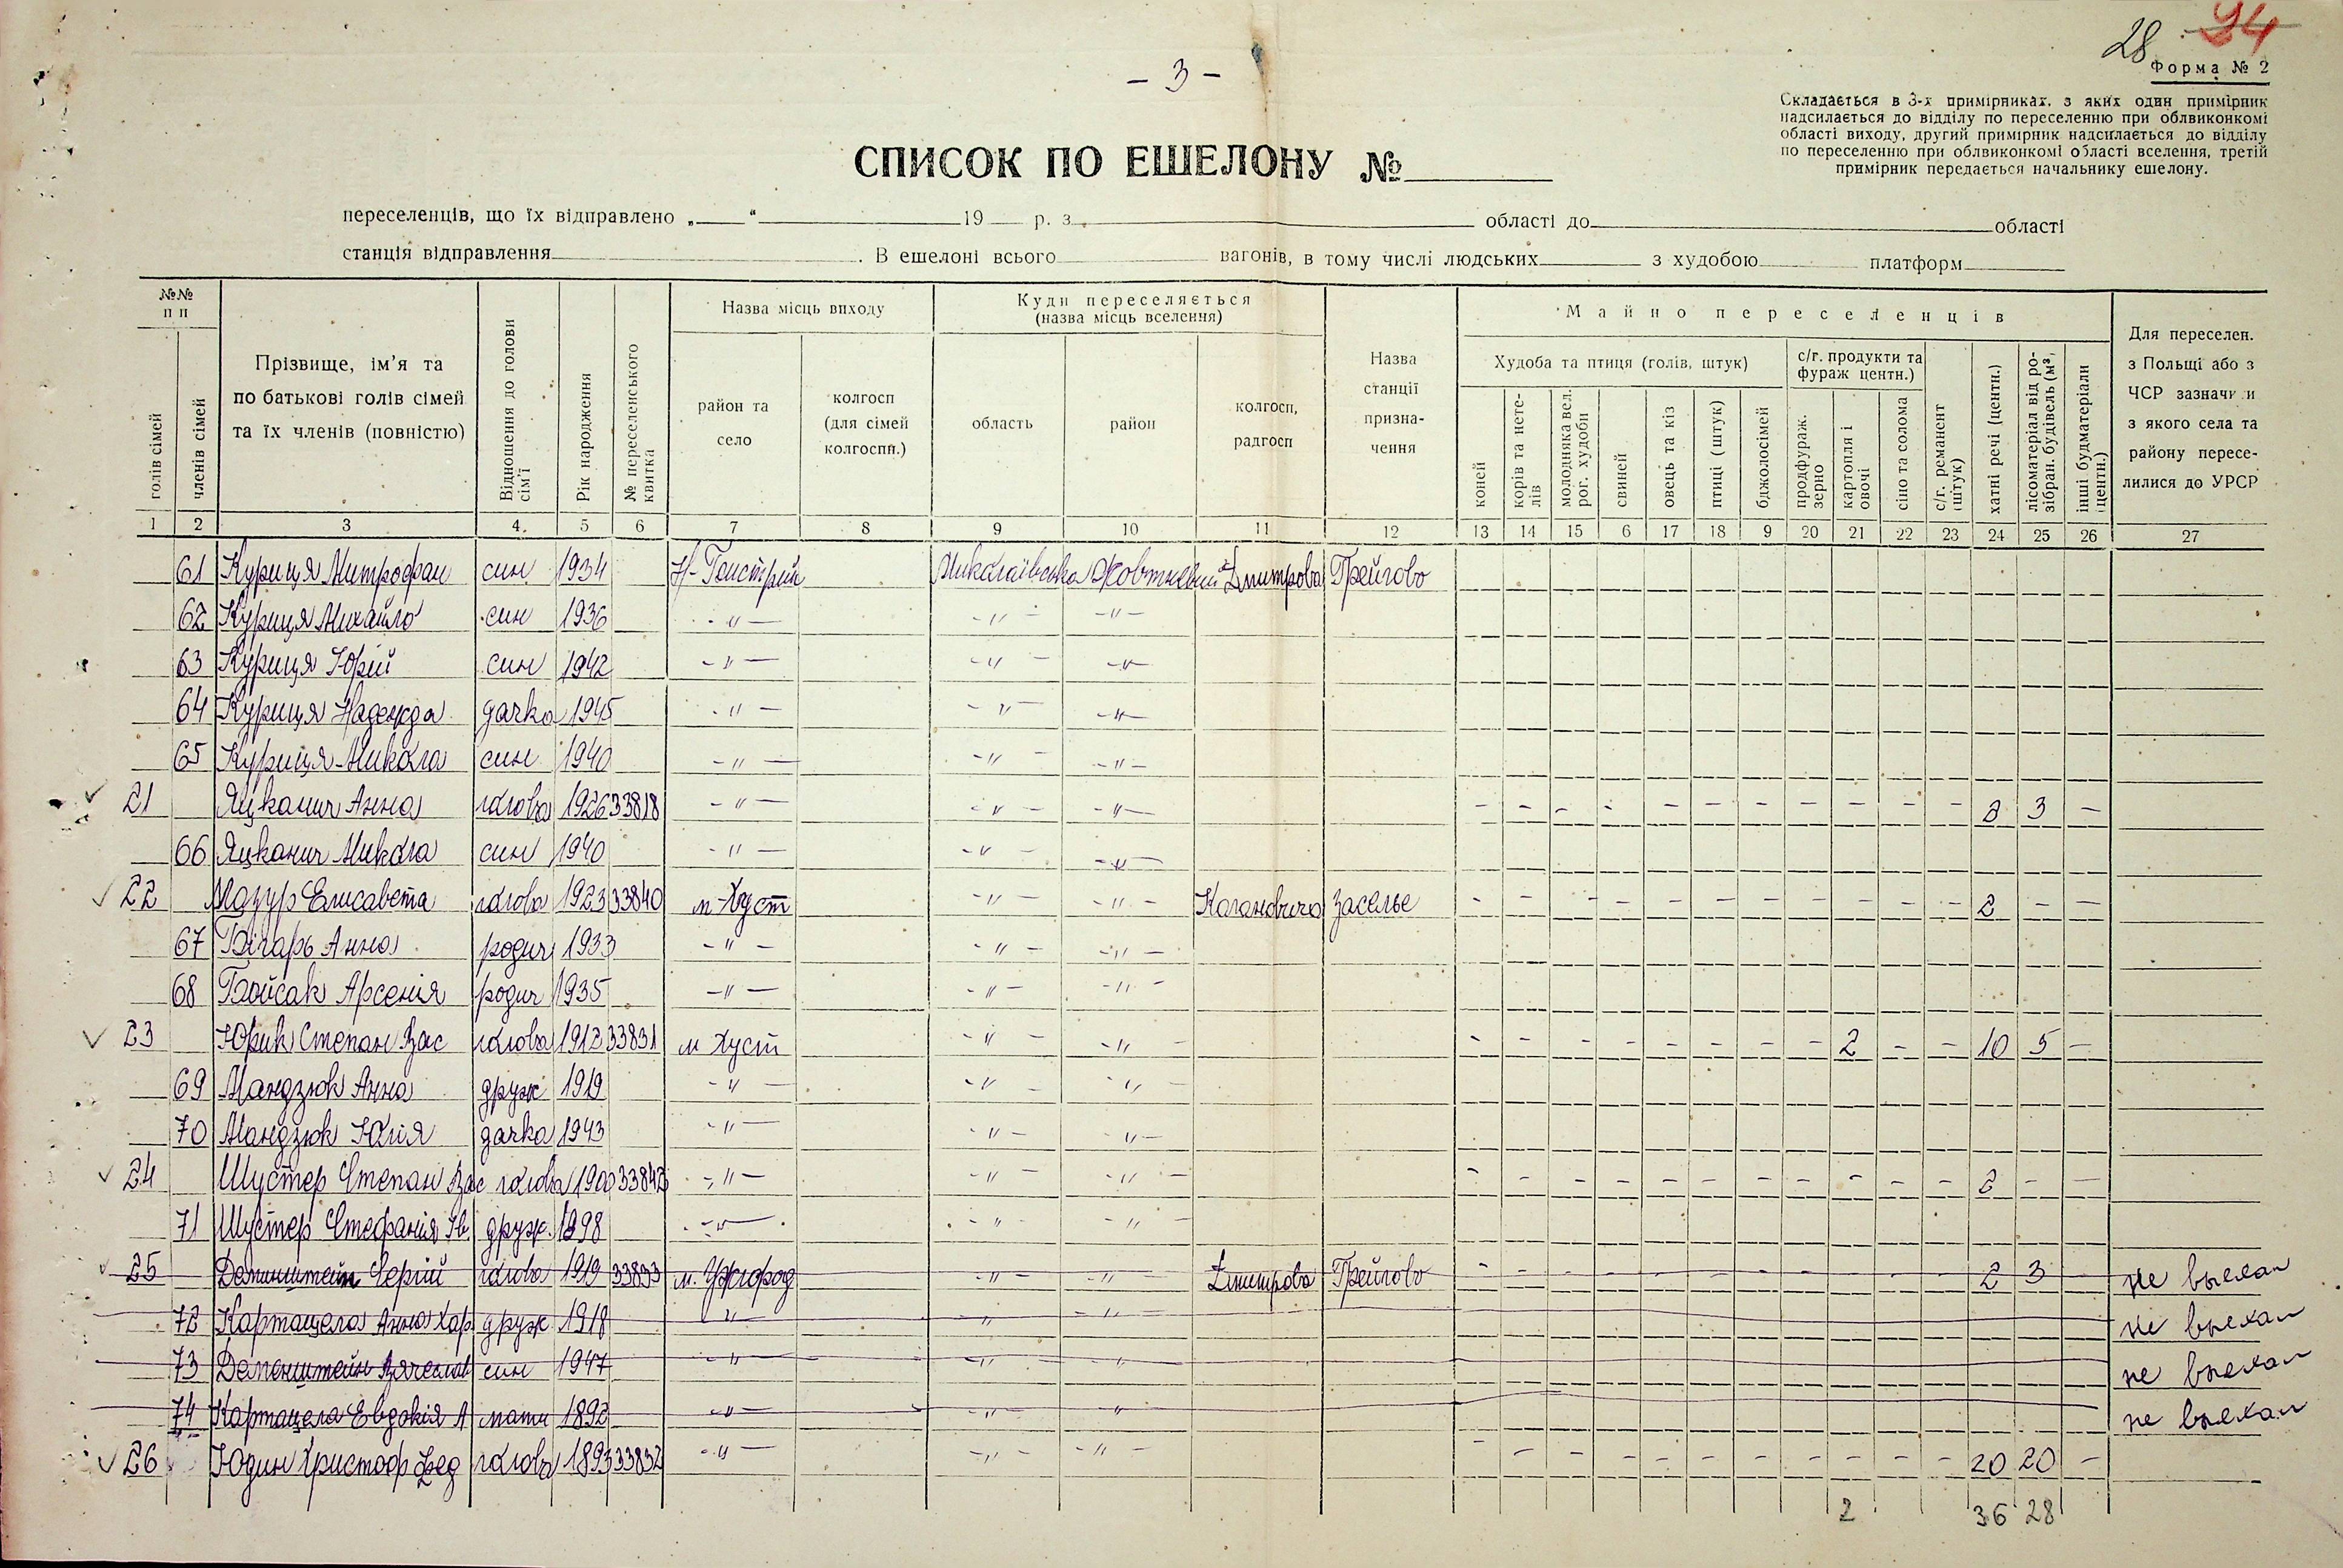 28 94
- 3 -
Форма № 2
Складається в 3-х примірниках, з яких один примірник
надсилається до відділу по переселенню при облвиконкомі
області виходу, другий примірник надсилається до відділу
по переселенню при облвиконкомі області вселення, третій
примірник передається начальнику ешелону.
СПИСОК ПО ЕШЕЛОНУ №
переселенців, що їх відправлено „ “ 19 р. з області до області
станція відправлення . В ешелоні всього вагонів, в тому числі людських з худобою платформ
№№ п п
голів сімей
членів сімей
Прізвище, ім'я та
по батькові голів сімей
та їх членів (повністю)
Відношення до голови сім'ї
Рік народження
№ переселенського квитка
Назва місць виходу
район та село
колгосп (для сімей колгоспн.)
Куди переселяється
(назва місць вселення)
область
район
колгосп, радгосп
Назва станції призна-чення
Майно переселенців
Худоба та птиця (голів, штук)
коней
корів та нете-лів
молодняка вел. рог. худоби
свиней
овець та кіз
птиці (штук)
бджолосімей
с/г. продукти та фураж центн.)
продфураж. зерно
картопля і овочі
сіно та солома
с/г. реманент (штук)
хатні речі (центн.)
лісоматеріал від ро-зібран. будівель (м³,
інші будматеріали (центн.)
Для переселен.
з Польщі або з
ЧСР зазначи и
з якого села та
району пересе-
лилися до УРСР
1 2 3 4. 5 6 7 8 9 10 11 12 13 14 15 6 17 18 9 20 21 22 23 24 25 26 27
61 Куриця Митрофан син 1934 Н-Бистрий Миколаївська Жовтневий Димитрова Грейгово
62 Куриця Михайло син 1936 -"- -"- -"-
63 Куриця Юрій син 1942 -"- -"- -"-
64 Куриця Надежда дачка 1945 -"- -"- -"-
65 Куриця Микола син 1940 -"- -"- -"-
21 Яцканич Анна голова 1926 33818 -"- -"- -"- - - - - - - - - - - - 8 3 -
66 Яцканич Микола син 1940 -"- -"- -"-
22 Мазур Елисавета голова 1923 33840 м-Хуст -"- -"- Кагановича Заселье - - - - - - - - - - - 2 - -
67 Анна родич 1933 -"- -"- -"-
68 Бойсак Арсенія родич 1935 -"- -"- -"-
23 Юрик Степан Вас голова 1912 33831 м Хуст -"- -"- - - - - - - - - 2 - - 10 5 -
69 Мандзюк Анна друж 1919 -"- -"- -"-
70 Мандзюк Юлія дачка 1943 -"- -"- -"-
24 Шустер Степан Вас голова 1900 33842 -"- -"- -"- - - - - - - - - - - - 2 - -
71 Шустер Стефанія Ів. друж. 1898 -"- -"- -"-
25 Сергій голова 1919 33833 м. Ужгород -"- -"- Димитрова Грейгово - - - - - - - - - - - 2 3 - не выехал
72 Картацела Анна Хар друж 1918 -"- -"- -"- не выехал
73 Вячеслав син 1947 -"- -"- -"- не выехал
74 Картацела Евдокія А мати 1892 -"- -"- -"- не выехал
26 Юдин Христофор Фед голова 1893 33832 -"- -"- -"- - - - - - - - - - - - 20 20 -
2 36 28